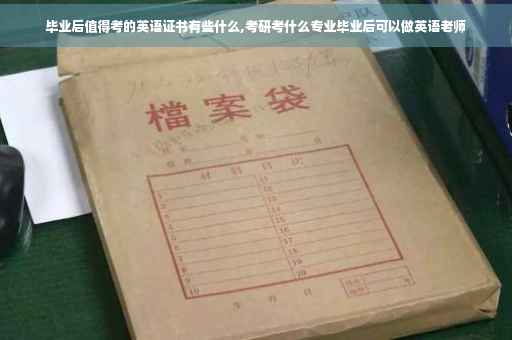 毕业后值得考的英语证书有些什么,考研考什么专业毕业后可以做英语老师
檔案袋
材料目次
1 11
2 12
3 13
4 14
5 15
6 16
7 17
8 18
9 19
10 20
年 月 日